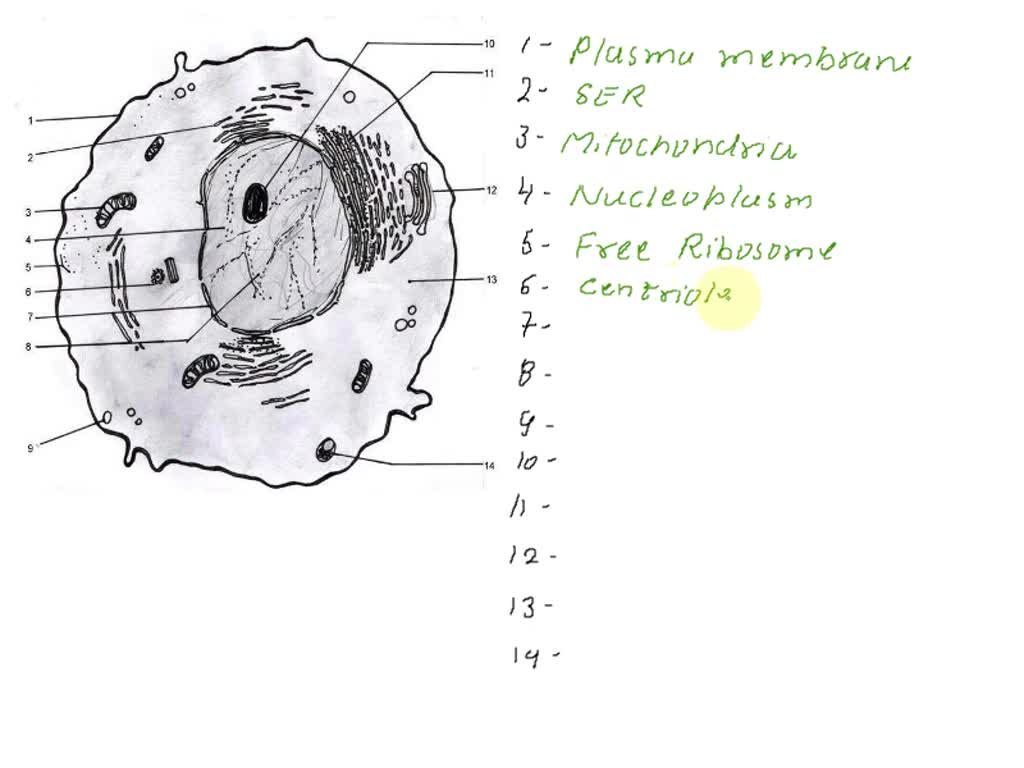 1
2
3
4
5
6
7
8
9
10
11
12
13
14
1- Plasma membrane
2- SER
3- Mitochondria
4- Nucleoplasm
5- Free Ribosome
6- Centriole
7-
8-
9-
10-
11-
12-
13-
14-